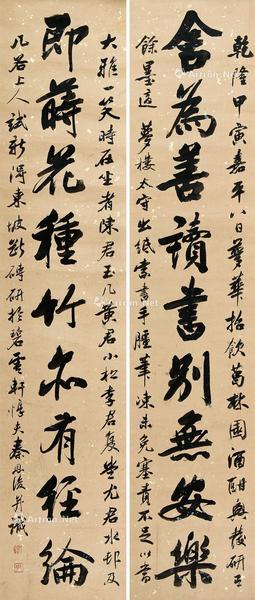 乾隆甲寅嘉平八日夢華招飲葛林園酒酣興發研
舍為善讀書別無安樂
餘墨適夢樓太守出紙索書手腫筆凍未免塞責不足以當
大雅一笑時在坐者陳君玉几黃君小松李君夏尤君水邨及
即蒔花種竹亦有經綸
几谷上人試新得東坡斷碑研於碧雲軒惇夫秦恩復并識